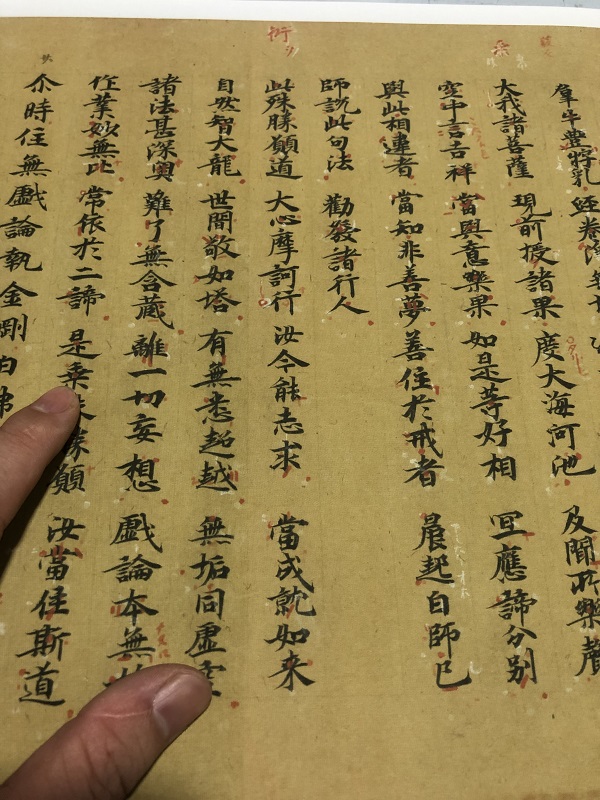 牛豊牸乳
大我諸菩薩 現前授諸果 度大海河池 及聞所樂聲
空中言吉祥 當與意樂果 如是等好相 冝應諦分別
與此相違者 當知非善夢 善住於戒者 晨起白師已
師說此句法 勸發諸行人
衍
此殊勝願道 大心摩訶行 汝今能志求 當成就如来
自然智大龍 世間敬如塔 有無悉超越 無垢同虛空
諸法甚深奧 難了無含蔵 離一切妄想 戲論本無
作業妙無比 常依於二諦 是乘 願 汝當住斯道
尒時住無戲論執金剛白佛